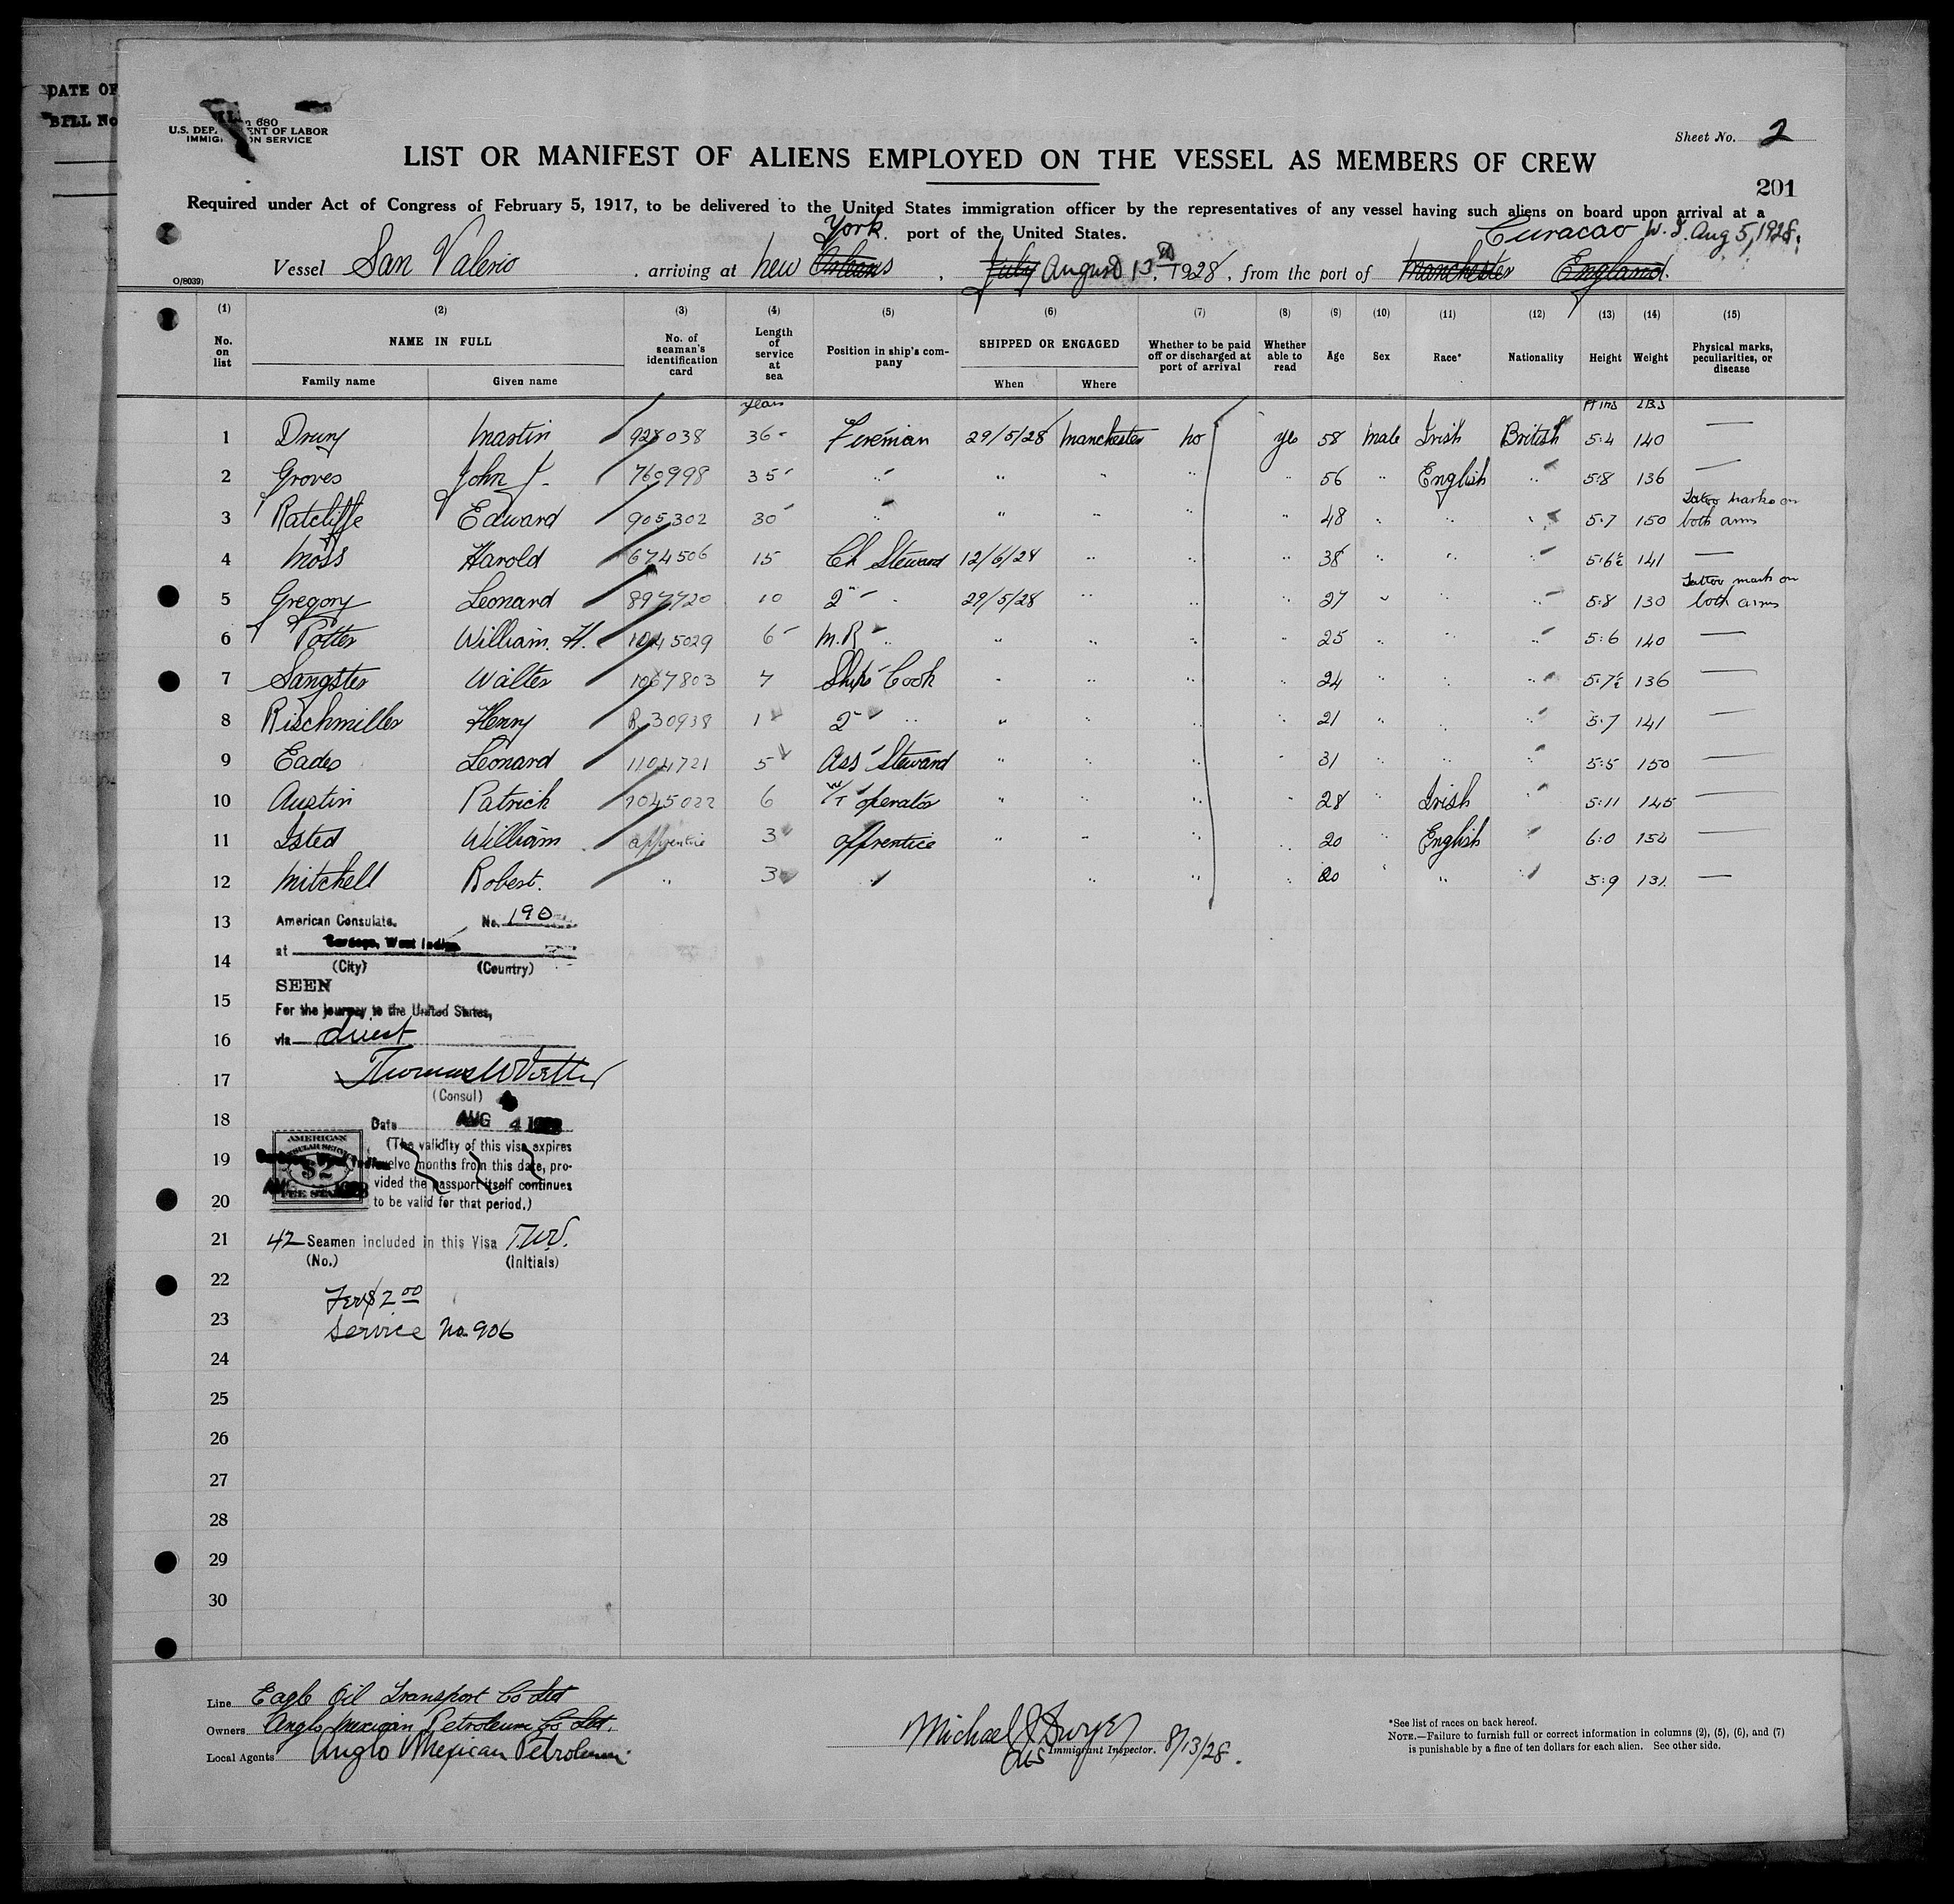 DATE OF
BILL No
680
U.S. DEP ENT OF LABOR
IMMIG ON SERVICE
Sheet No. 2
LIST OR MANIFEST OF ALIENS EMPLOYED ON THE VESSEL AS MEMBERS OF CREW
201
Required under Act of Congress of February 5, 1917, to be delivered to the United States immigration officer by the representatives of any vessel having such aliens on board upon arrival at a
port of the United States.
York Curacao W. I. Aug 5, 1928.
Vessel San Valerio, arriving at New Orleans, July August 13th 1928, from the port of Manchester England.
O/8039)
(1) (2) (3) (4) (5) (6) (7) (8) (9) (10) (11) (12) (13) (14) (15)
No. on list NAME IN FULL No. of seaman's identification card Length of service at sea Position in ship's company SHIPPED OR ENGAGED Whether to be paid off or discharged at port of arrival Whether able to read Age Sex Race* Nationality Height Weight Physical marks, peculiarities, or disease
Family name Given name When Where
years Ft ins LBS
1 Drury Martin 928038 36 Fireman 29/5/28 Manchester no yes 58 male Irish British 5.4 140 —
2 Groves John J. 760998 35 " " " " " 56 " English " 5.8 136 —
3 Ratcliffe Edward 905302 30 " " " " " 48 " " " 5.7 150 Tattoo marks on both arms
4 Moss Harold 674506 15 Ch Steward 12/6/28 " " " 38 " " " 5.6½ 141 —
5 Gregory Leonard 897720 10 2nd " 29/5/28 " " " 27 " " " 5.8 130 Tattoo mark on both arms
6 Potter William. H. 1045029 6 M.R " " " " " 25 " " " 5.6 140 —
7 Sangster Walter 1067803 7 Ships Cook " " " " 24 " " " 5.7½ 136 —
8 Rischmiller Henry R.30938 1 2nd " " " " " 21 " " " 5.7 141 —
9 Eades Leonard 1104721 5 Ass Steward " " " " 31 " " " 5.5 150 —
10 Austin Patrick 1045022 6 W/T operator " " " " 28 " Irish " 5.11 145 —
11 Isted William apprentice 3 apprentice " " " " 20 " English " 6.0 154 —
12 Mitchell Robert. " 3 " " " " 20 " " " 5.9 131 —
13 American Consulate, No. 190
at Curacao, West Indies
14 (City) (Country)
SEEN
15 For the journey to the United States,
16 via direct
17
(Consul)
18 Date AUG 4 1928
AMERICAN
CONSULAR SERVICE
$2
FEE STAMP
(The validity of this visa expires
19 twelve months from this date, pro-
vided the passport itself continues
20 to be valid for that period.)
21 42 Seamen included in this Visa T.W.V.
(No.) (Initials)
22 Fee $2.00
23 Service No. 906
24
25
26
27
28
29
30
Line Eagle Oil Transport Co Ltd
Owners Anglo Mexican Petroleum Co Ltd.
Local Agents Anglo Mexican Petroleum
Michael J Dwyer
Immigrant Inspector. 8/13/28.
*See list of races on back hereof.
NOTE.—Failure to furnish full or correct information in columns (2), (5), (6), and (7)
is punishable by a fine of ten dollars for each alien. See other side.